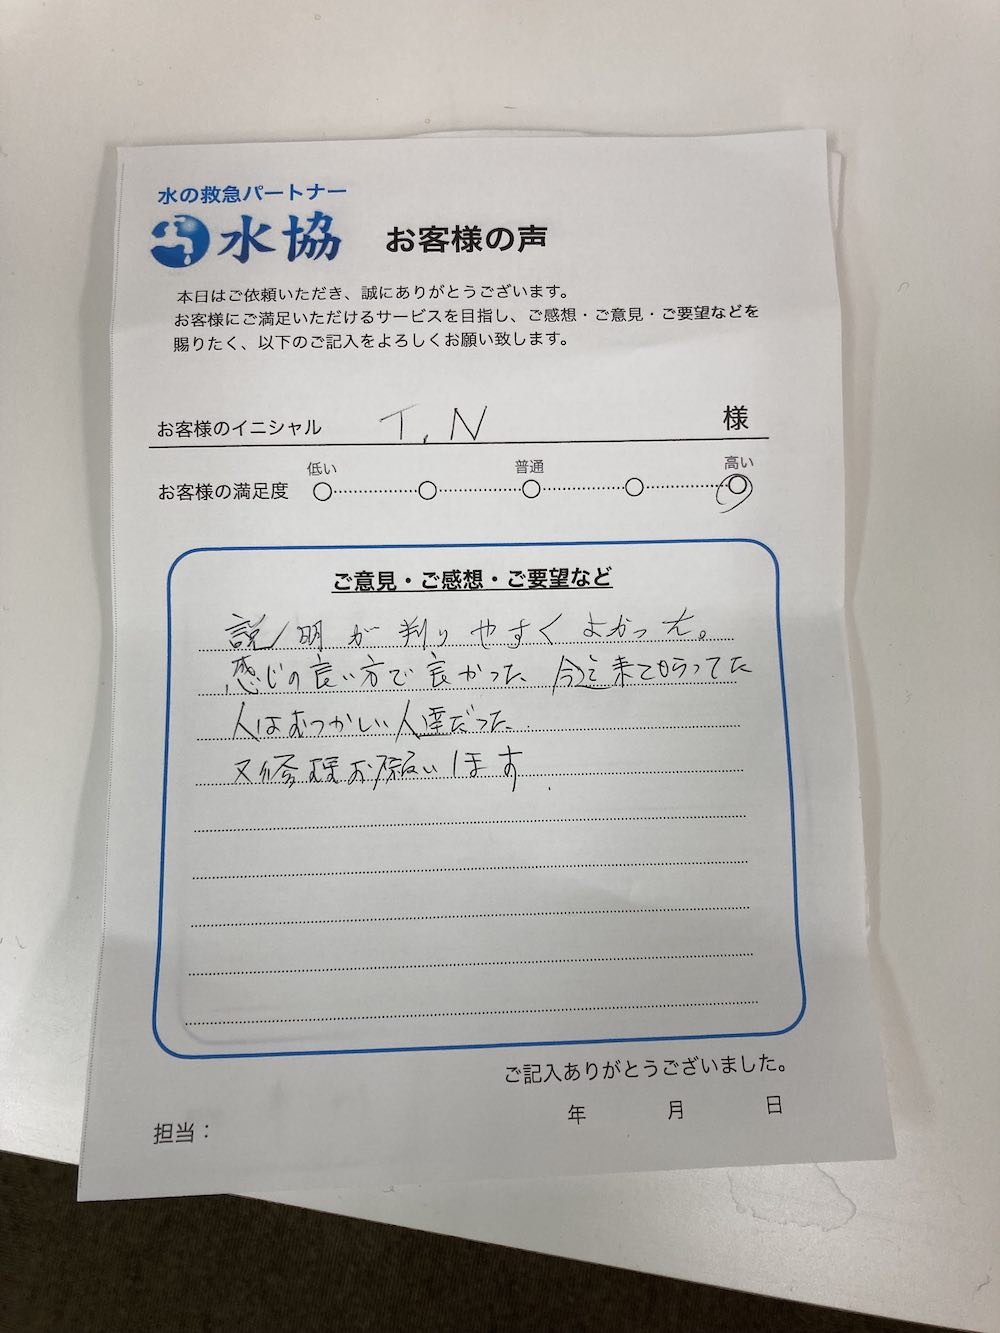 水の救急パートナー
水協 お客様の声
本日はご依頼いただき、誠にありがとうございます。
お客様にご満足いただけるサービスを目指し、ご感想・ご意見・ご要望などを
賜りたく、以下のご記入をよろしくお願い致します。
お客様のイニシャル T.N 様
低い 普通 高い
お客様の満足度
ご意見・ご感想・ご要望など
説明が判りやすくよかった。
感じの良い方で良かった 今迄来てもらってた
人はむつかしい人達だった.
又修理お願いします.
ご記入ありがとうございました。
年 月 日
担当：